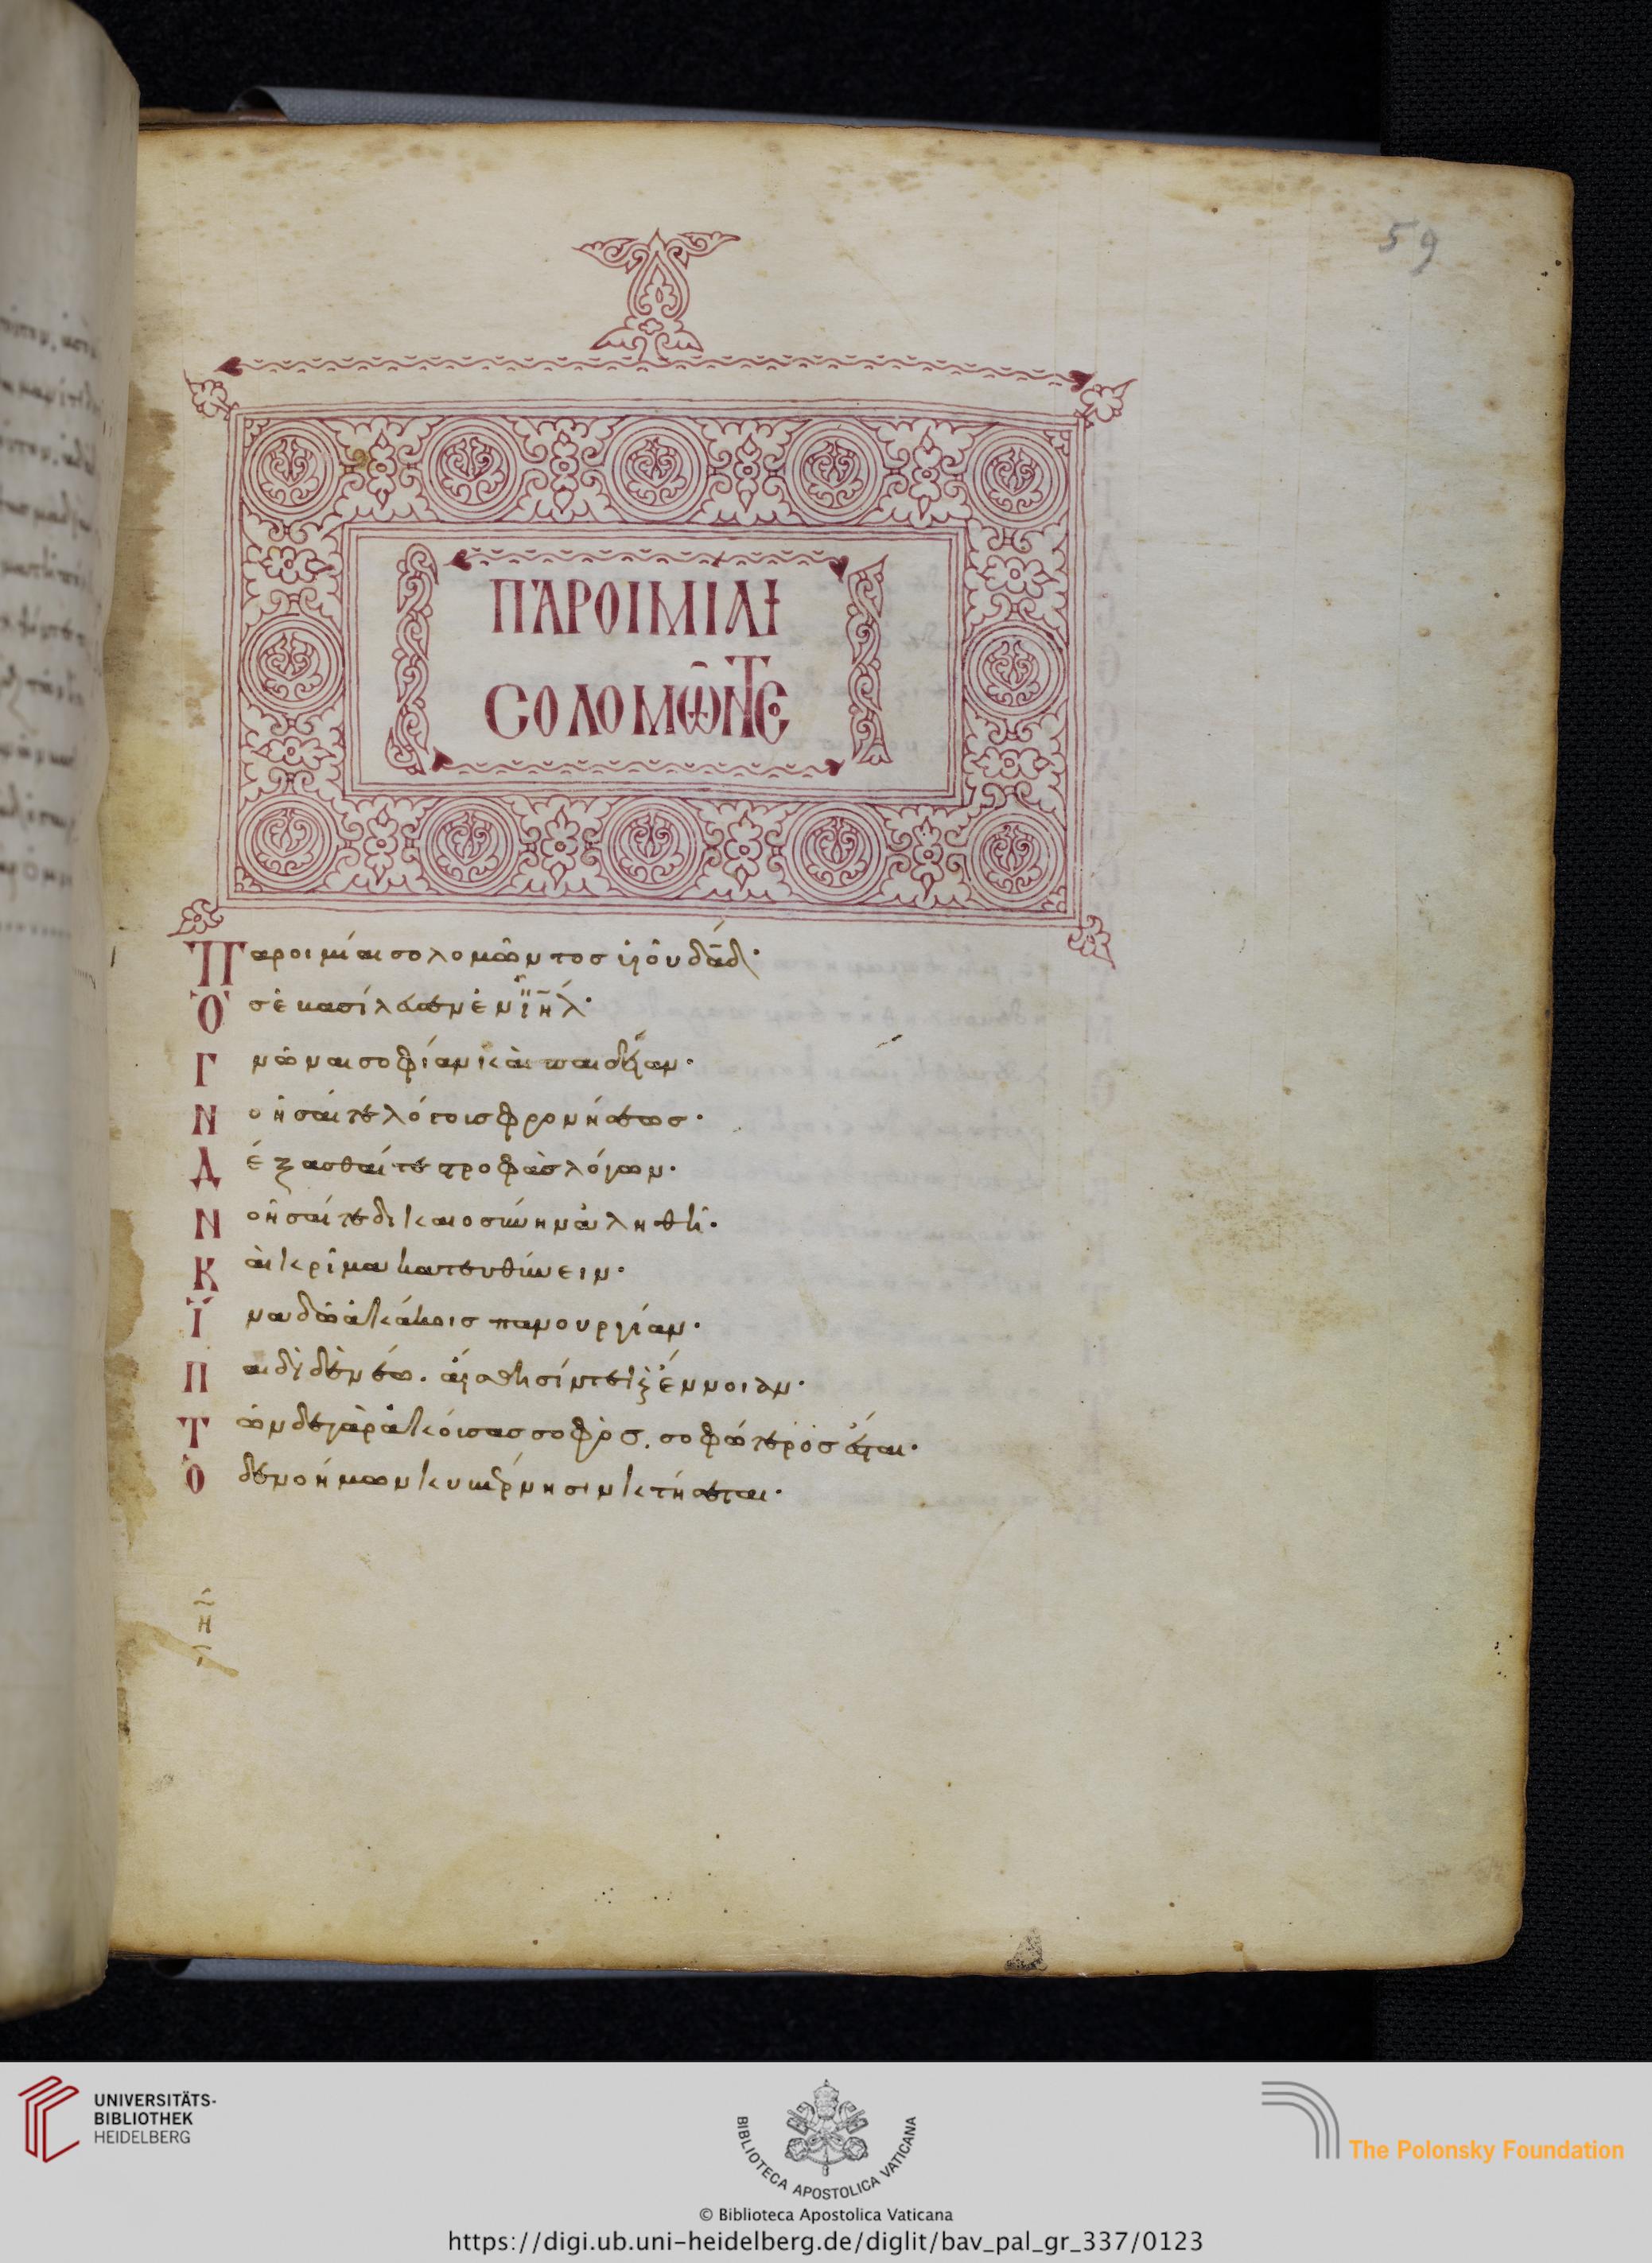 59
ΠΑΡΟΙΜΙΑΙ
CΟΛΟΜΩ͂ΝΤΟC
Παροιμίαι σολομῶντος υἱοῦ δᾱδ·
Ὃσ ἐβασίλευσεν ἐν ϊη̄λ·
Γνῶναι σοφίαν καὶ παιδείαν·
Νοῆσαί τε λόγοισ φρονήσεωσ·
Δέξασθαί τε στροφὰσ λόγων·
Νοῆσαί τε δικαιοσύνην ἀληθῆ·
Καὶ κρίμα κατευθύνειν·
Ϊνα δῷ ἀκάκοισ πανουργίαν·
Παιδὶ δὲ νέω. αἴσθησίν τε κ ἔννοιαν·
Τῶνδε γὰρ ἀκούσασ σοφὸσ. σοφώτεροσ ἔσται·
Ὁ δὲ νοήμων κυβέρνησιν κτήσεται·
UNIVERSITÄTS-
BIBLIOTHEK
HEIDELBERG
BIBLIOTECA APOSTOLICA VATICANA
The Polonsky Foundation
© Biblioteca Apostolica Vaticana
https://digi.ub.uni-heidelberg.de/diglit/bav_pal_gr_337/0123